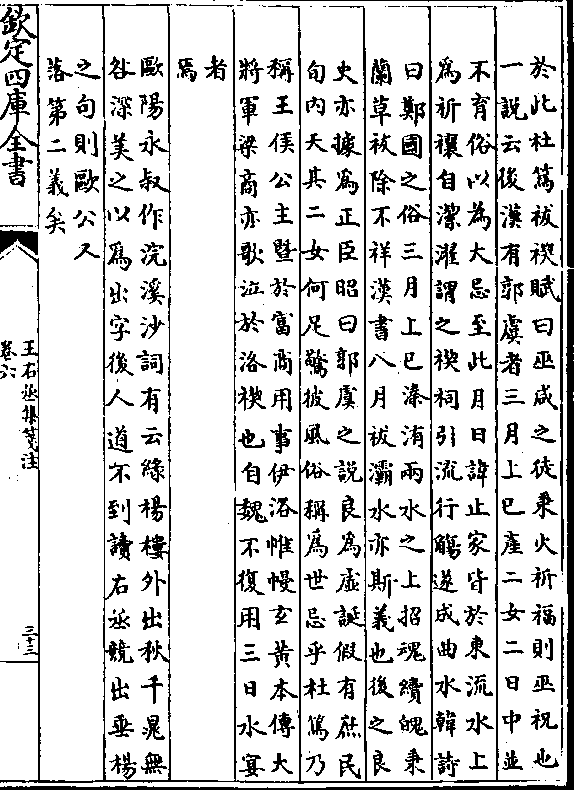 於此杜篤祓禊賦曰巫咸之徒秉火祈福則巫祝也
一説云後漢有郭虞者三月上巳産二女二日中並
不育俗以為大忌至此月日諱止家皆於東流水上
為祈禳自潔濯謂之禊祠引流行觴遂成曲水韓詩
曰鄭國之俗三月上巳溱洧兩水之上招魂續魄秉
蘭草祓除不祥漢書八月祓灞水亦斯義也後之良
史亦據為正臣昭曰郭虞之説良為虚誕假有庶民
旬内天其二女何足驚披風俗稱為世忌乎杜篤乃
稱王侯公主暨於富商用事伊洛帷幔玄黄本傳大
將軍梁商亦歌泣於洛禊也自魏不復用三日水宴
者
焉
歐陽永叔作浣溪沙詞有云綠楊樓外出秋千晁無
咎深美之以為出字後人道不到讀右丞競出垂楊
之句則歐公又
落第二義矣
欽定四庫全書
王右丞集箋注
卷六
三十三